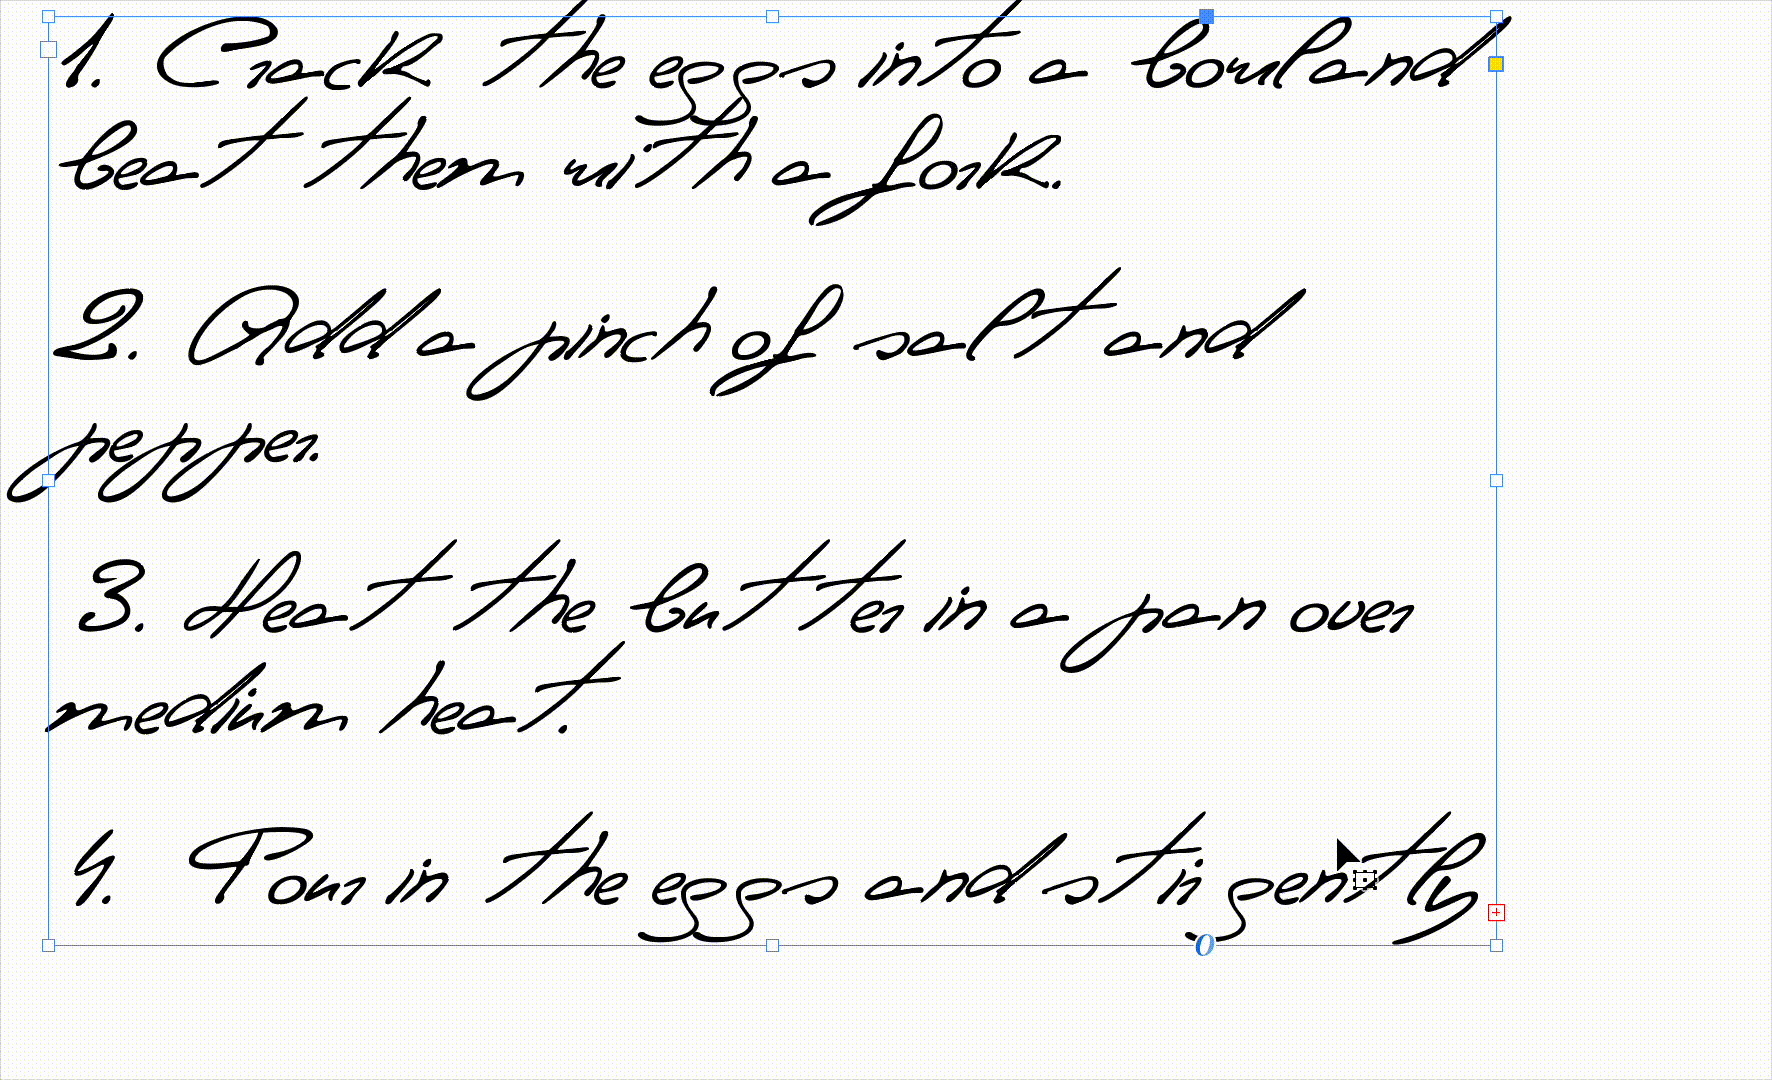 1. Crack the eggs into a bowl and
beat them with a fork.
2. Add a pinch of salt and
pepper.
3. Heat the butter in a pan over
medium heat.
4. Pour in the eggs and stir gently